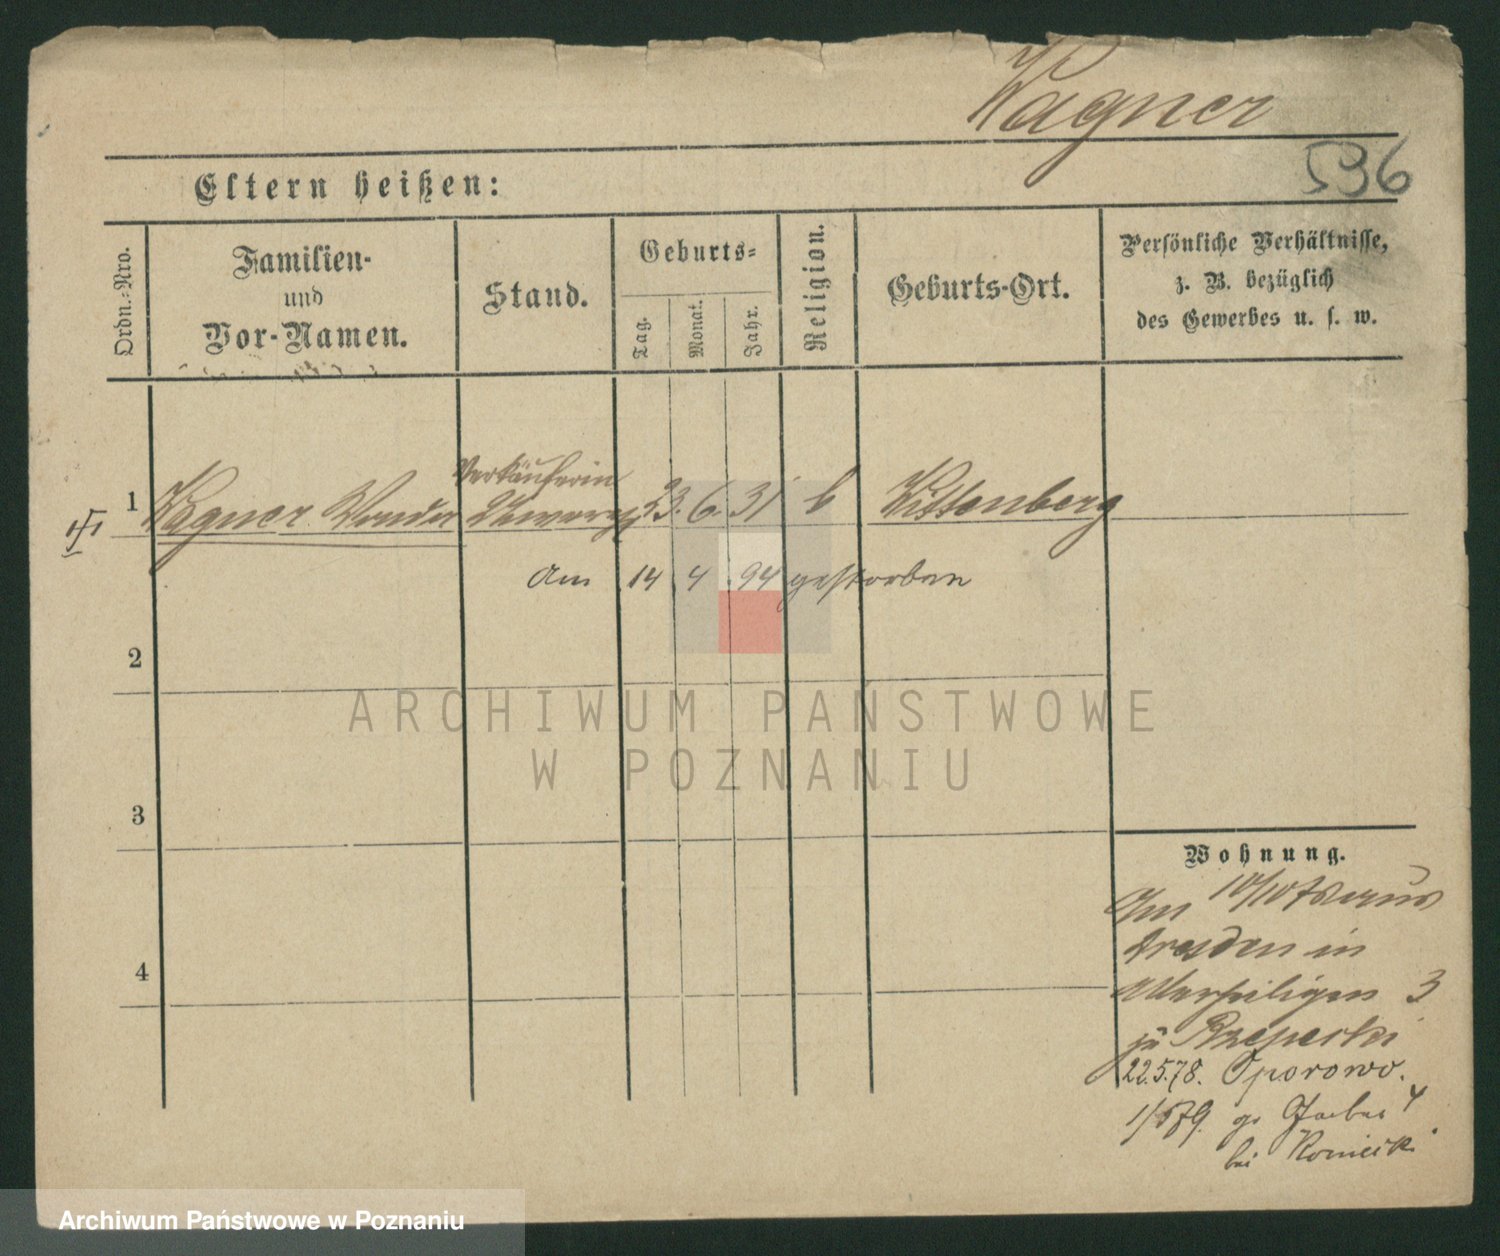 Wagner
536
Eltern heißen:
Ordn.-Nro.
Familien-
und
Vor-Namen.
Stand.
Geburts-
Tag.
Monat.
Jahr.
Religion.
Geburts-Ort.
Persönliche Verhältnisse,
z. B. bezüglich
des Gewerbes u. s. w.
Verkäuferin
1 Wagner 23. 6. 31 Wittenberg
Am 14 4. 94 gestorben
2
3
4
Wohnung.
Am 10/10
Dresden in
Allerheiligen 3
zu Rzepecki
22.5.78. Oporowo.
gr Gerber 4
bei
ARCHIWUM PAŃSTWOWE
W POZNANIU
Archiwum Państwowe w Poznaniu